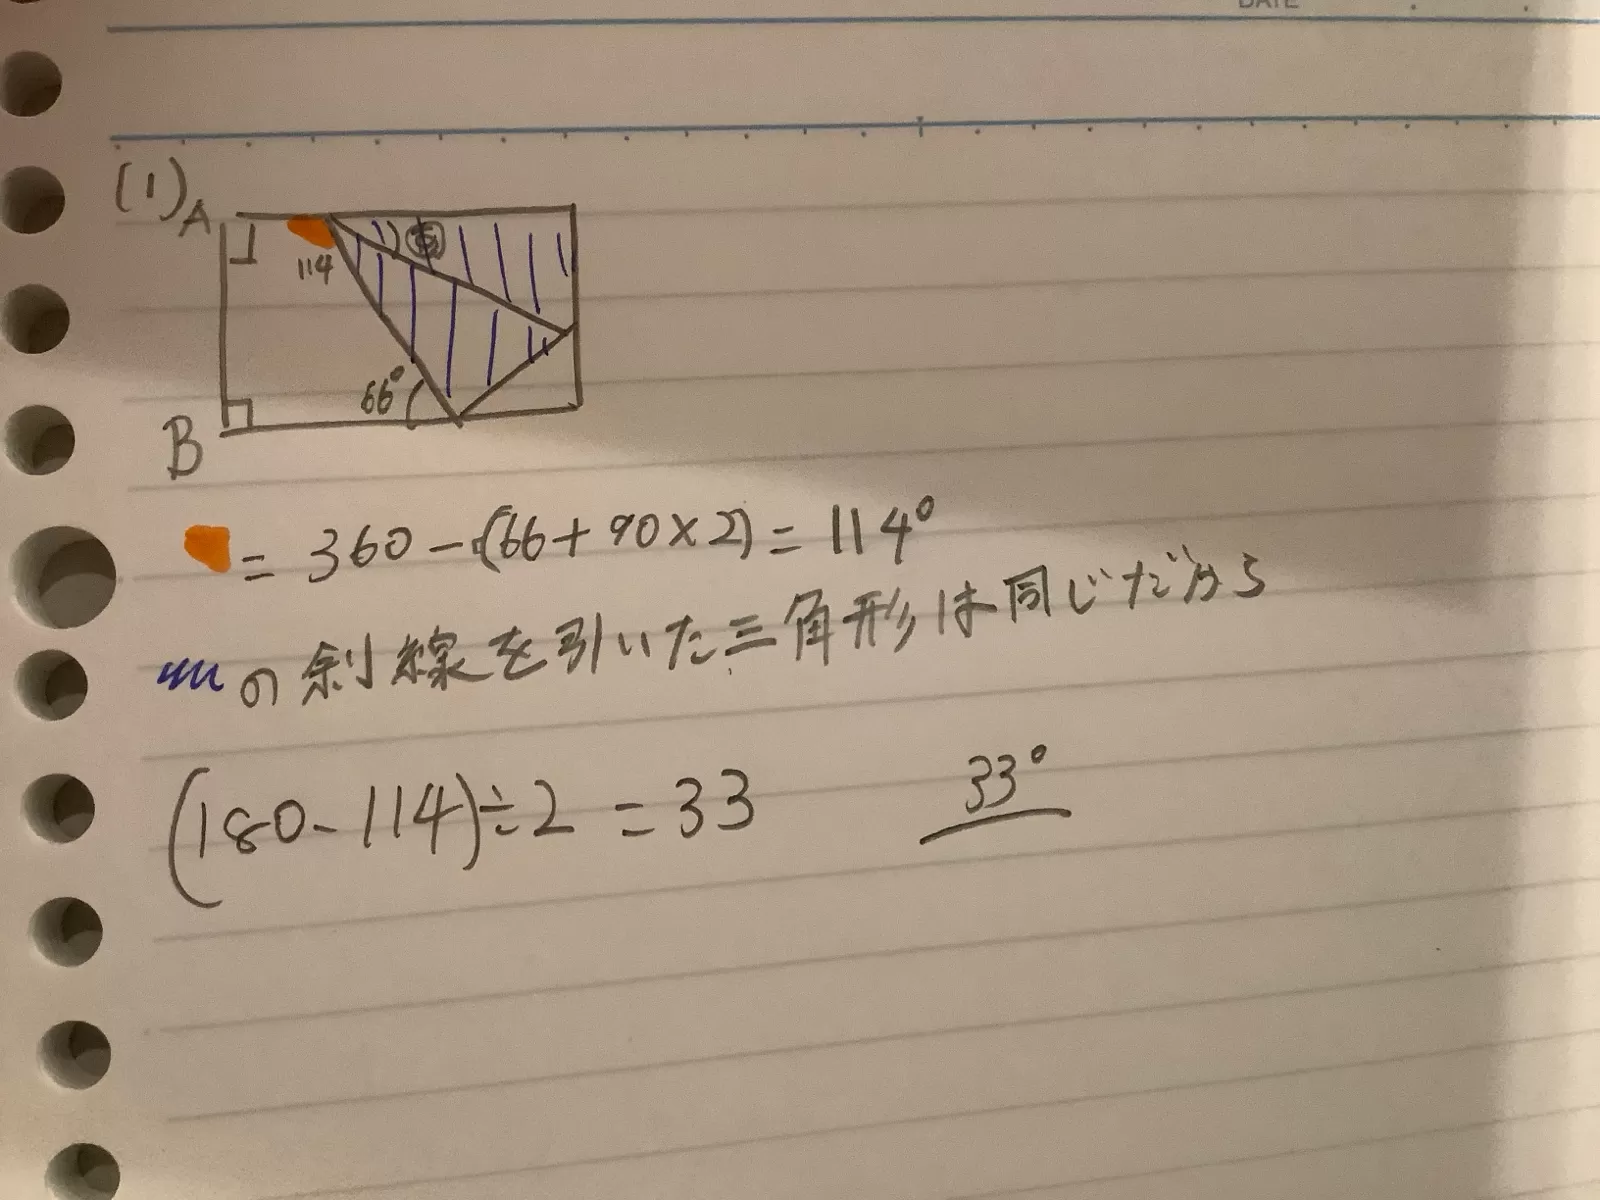 DATE
(1) A
114 あ
66°
B
= 360 - (66 + 90 × 2) = 114°
の斜線を引いた三角形は同じだから
(180 - 114) ÷ 2 = 33 33°